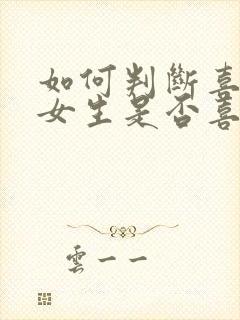 如何判斷喜
女生是否喜
雲一一